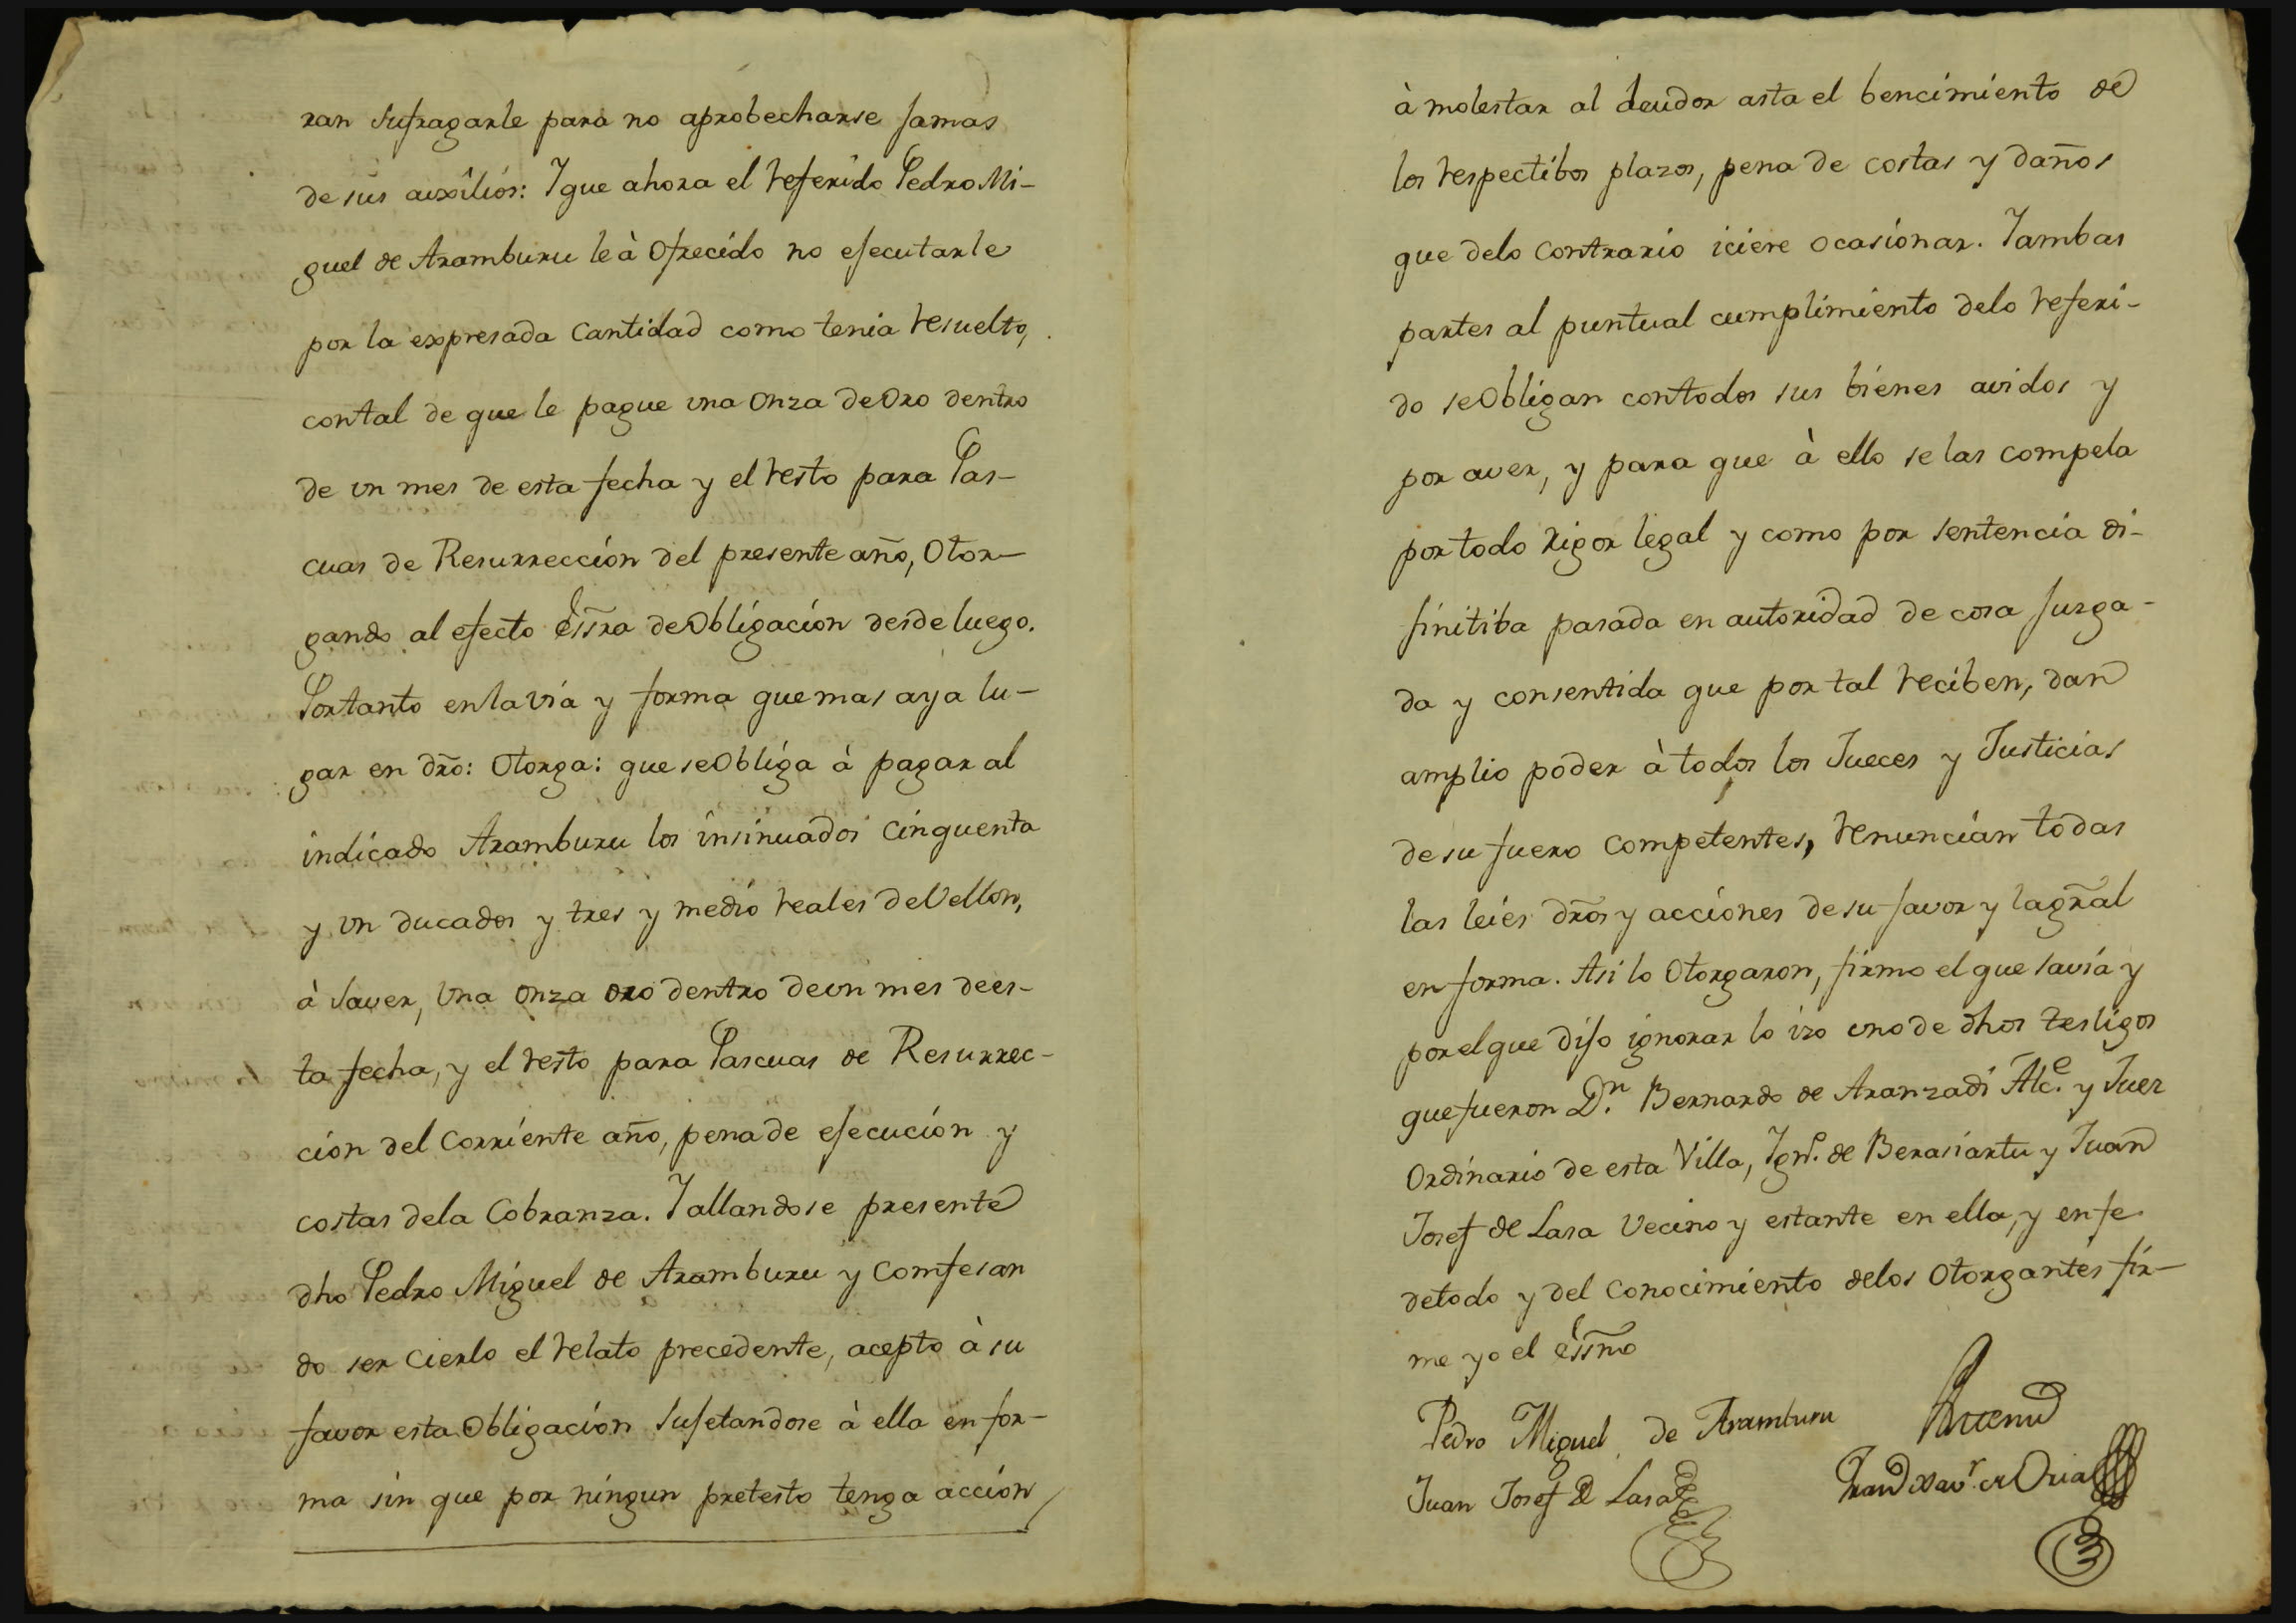 ran sufragarle para no aprobecharse jamas
de sus auxîliós: Y que ahora el referido Pedro Mi-
guel de Aramburu le à Ofrecido no ejecutarle
por la expresada Cantidad como tenia resuelto,
contal de que le pague una Onza de Oro dentro
de un mes de esta fecha y el resto para Pas-
cuas de Resurrección del presente año, Otor-
gando al efecto êssra de Obligación desde luego.
Portanto en la via y forma que mas aya lu-
gar en dro: Otorga: que se Obliga à pagar al
indicado Aramburu los insinuados Cinquenta
y un ducados y tres y medio reales de Vellon,
à Saver, Una Onza oro dentro de un mes de es-
ta fecha, y el resto para Pascuas de Resurrec-
cion del Corriente año, pena de ejecución y
costas dela Cobranza. Y allandose presente
dho Pedro Miguel de Aramburu y Comfesan
do ser Cierto el relato precedente, acepto à su
favor esta Obligación Sujetandose à ella en for-
ma sin que por ningun pretesto tenga acción
à molestar al deudor asta el bencimiento de
los respectibos plazos, pena de costas y daños
que delo Contrario iciere ocasionar. Y ambas
partes al puntual cumplimiento delo referi-
do se Obligan contodos sus bienes avidos y
por aver, y para que à ello se las compela
por todo rigor legal y como por sentencia di-
finitiba pasada en autoridad de cosa juzga-
da y consentida que por tal reciben, dan
amplio poder à todos los Jueces y Justicias
de su fuero Competentes, renuncian todas
las leies dros y acciones de su favor y la gral
en forma. Asi lo Otorgaron, firmo el que savía y
por el que dijo ignorar lo izo uno de dhos testigos
que fueron Dn. Bernardo de Aranzadi Alce. y Juez
Ordinario de esta Villa, Ign.o de Berasiartu y Juan
Josef de Lasa Vecino y estante en ella, y en fe
de todo y del Conocimiento delos Otorgantes fir-
me yo el êssno
Pedro Miguel de Aramburu
Juan Josef de Lasa